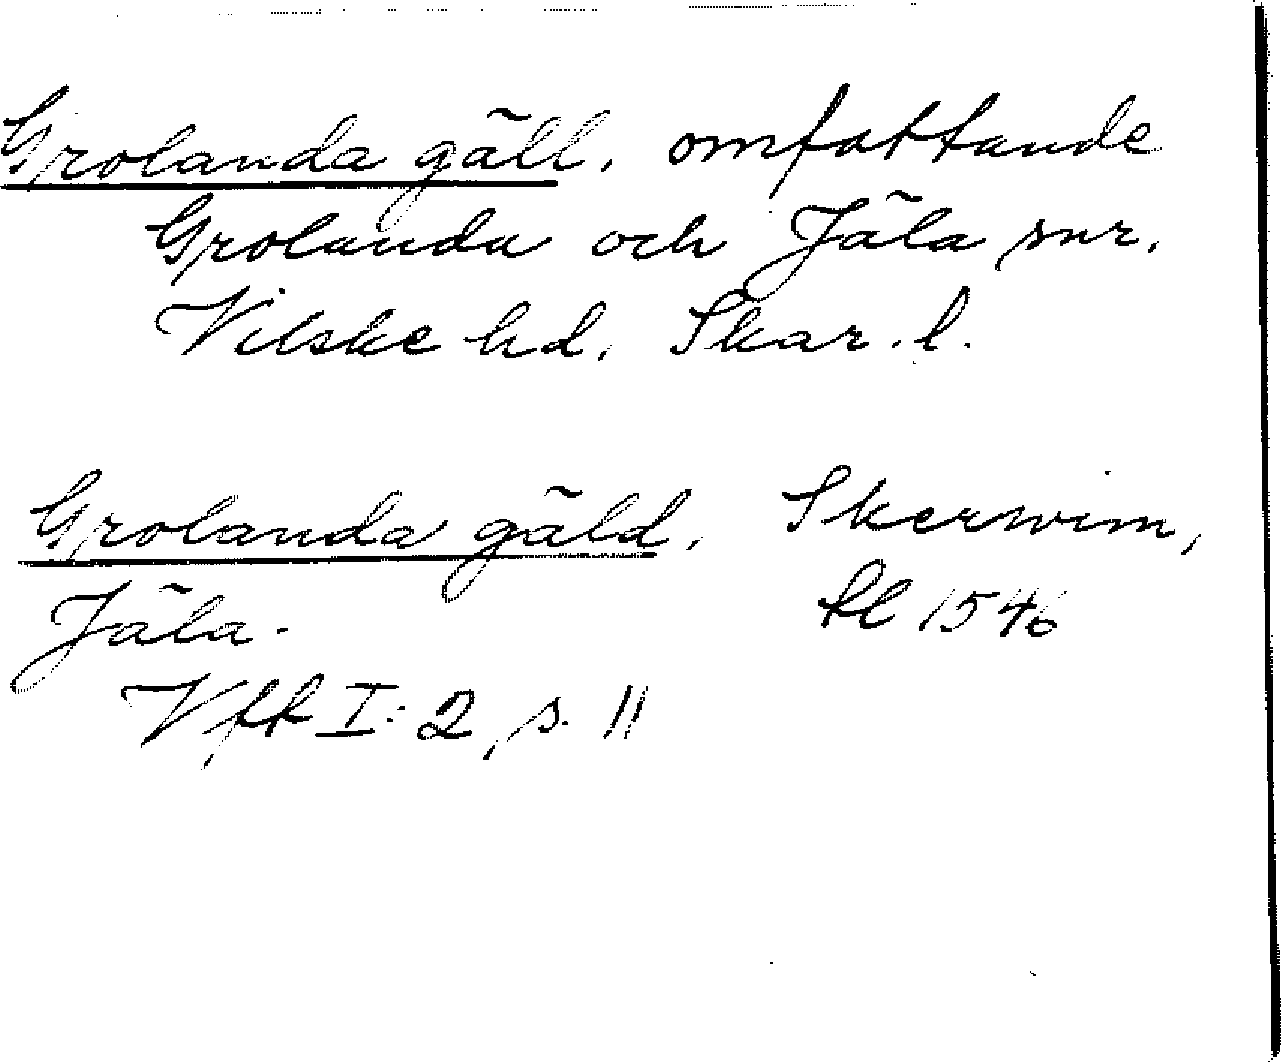 Grolanda gäll, omfattande
Grolanda och Jäla snr,
Vilske hd, Skar. l.
Grolanda gäld, Skerwim,
Jäla. fl 1546
Vff I:2, s. 11